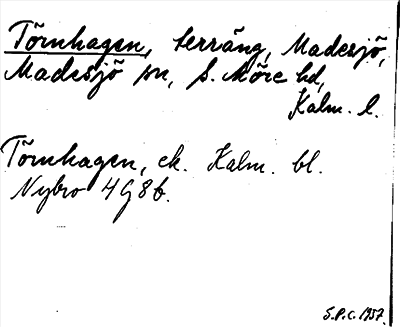 Törnhagen, terräng, Madesjö,
Madesjö sn, S. Möre hd,
Kalm. l.
Törnhagen, ek. Kalm. bl.
Nybro 4G8b.
S.P.C. 1957.